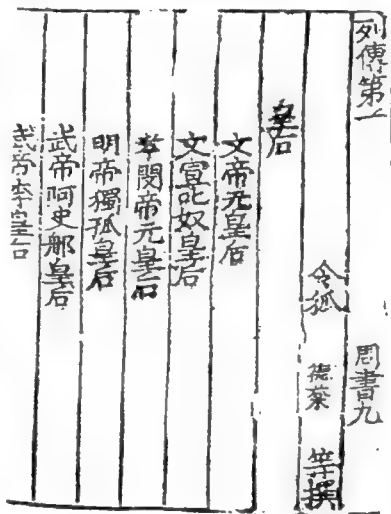 列傳第一　周書九
令狐　德棻　等撰
皇后
文帝元皇后
文宣叱奴皇后
孝閔帝元皇后
明帝獨孤皇后
武帝阿史那皇后
武帝李皇后